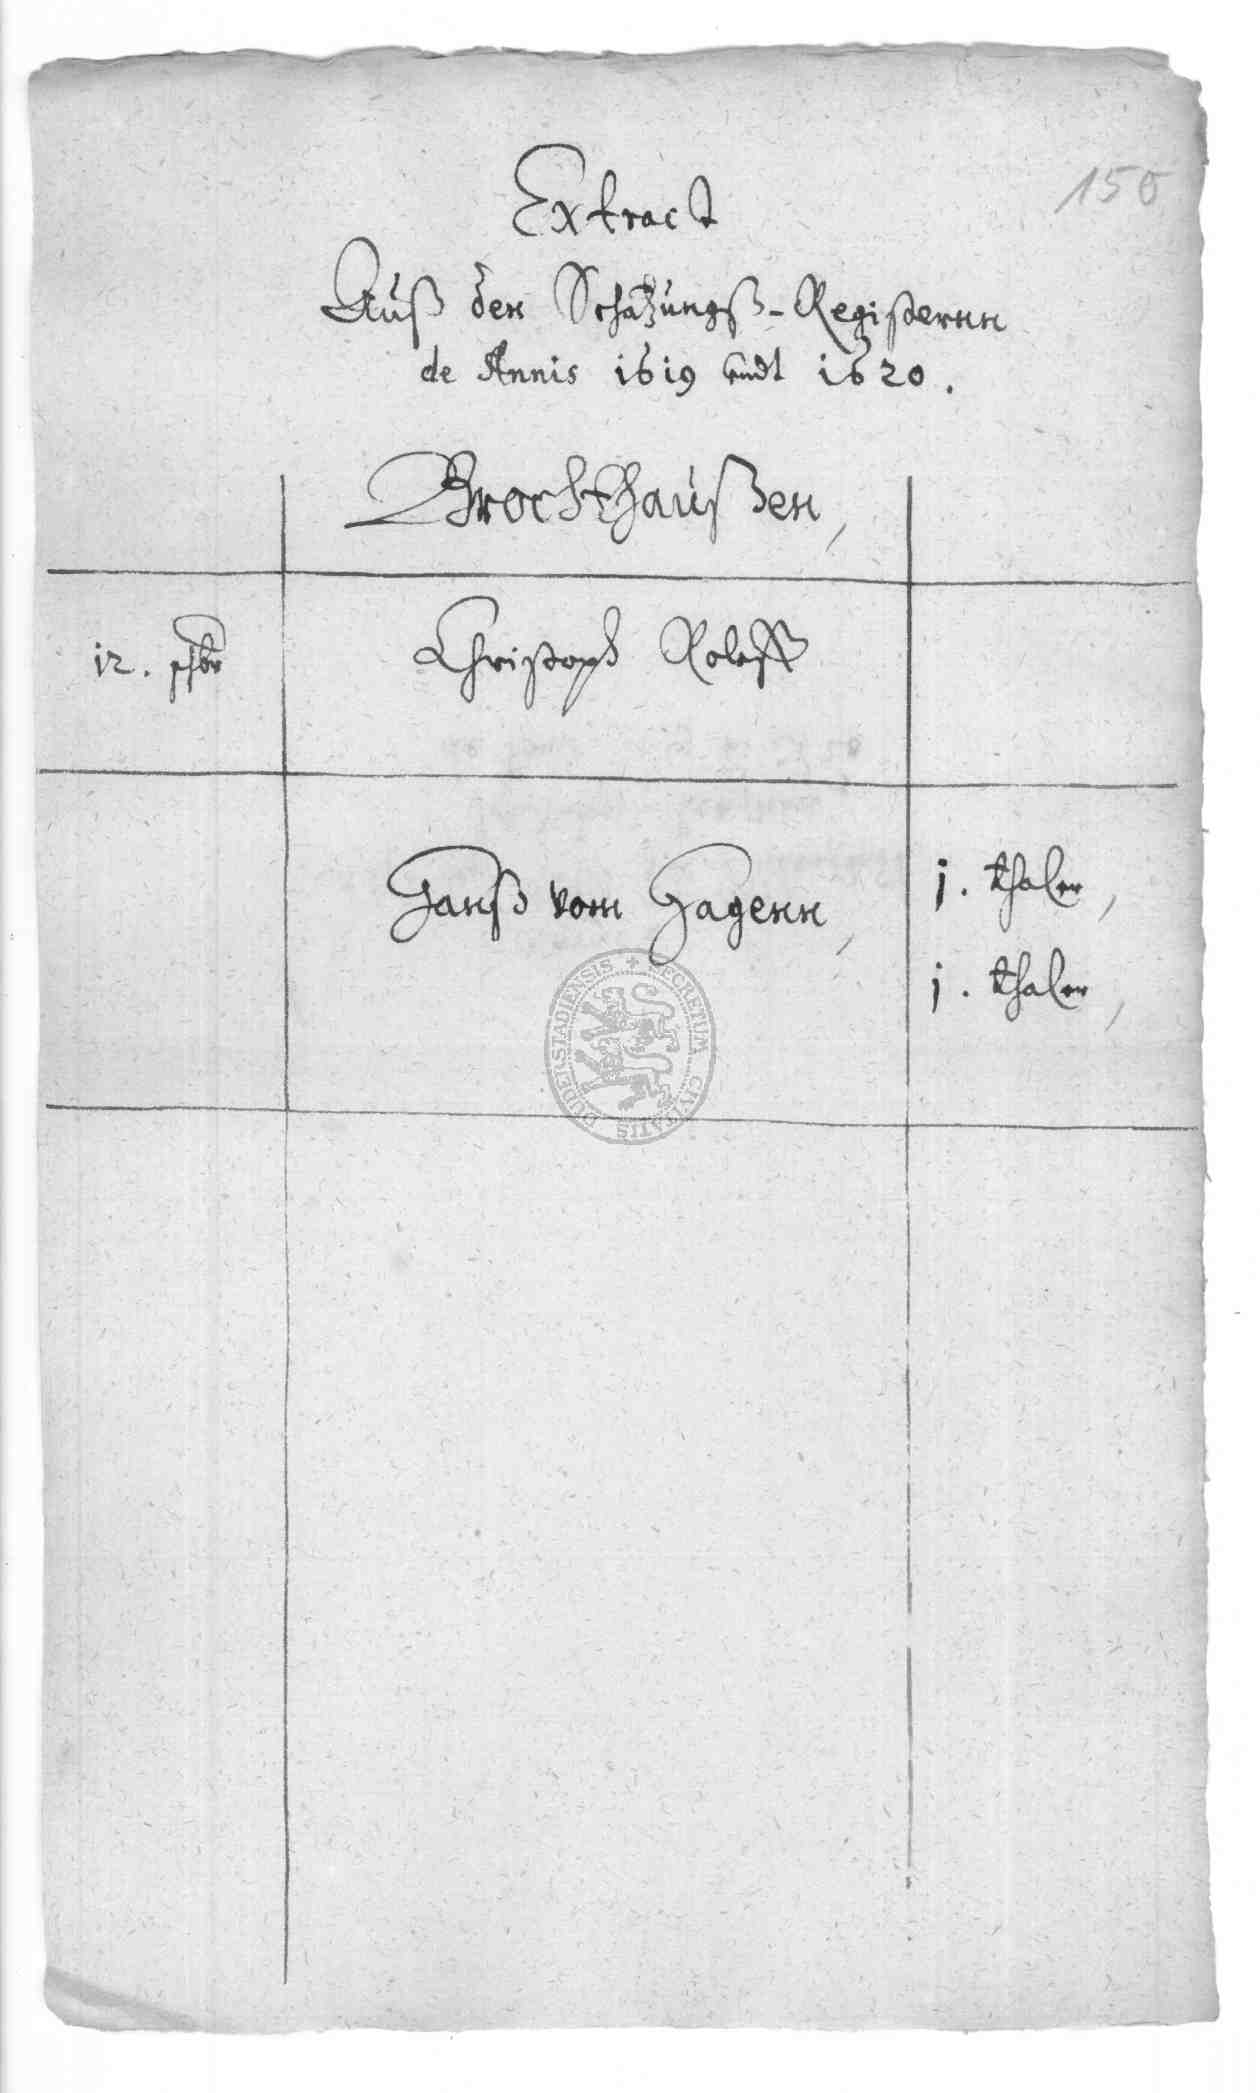 150
Extract
Auß den Schatzungß-Registernn
de Annis 1619 undt 1620.
Brochthaußen,
12.
Christoph Roleff
Hanß vom Hagenn,
j. thaler,
j. thaler,
SECRETUM CIVITATIS DUDERSTADIENSIS